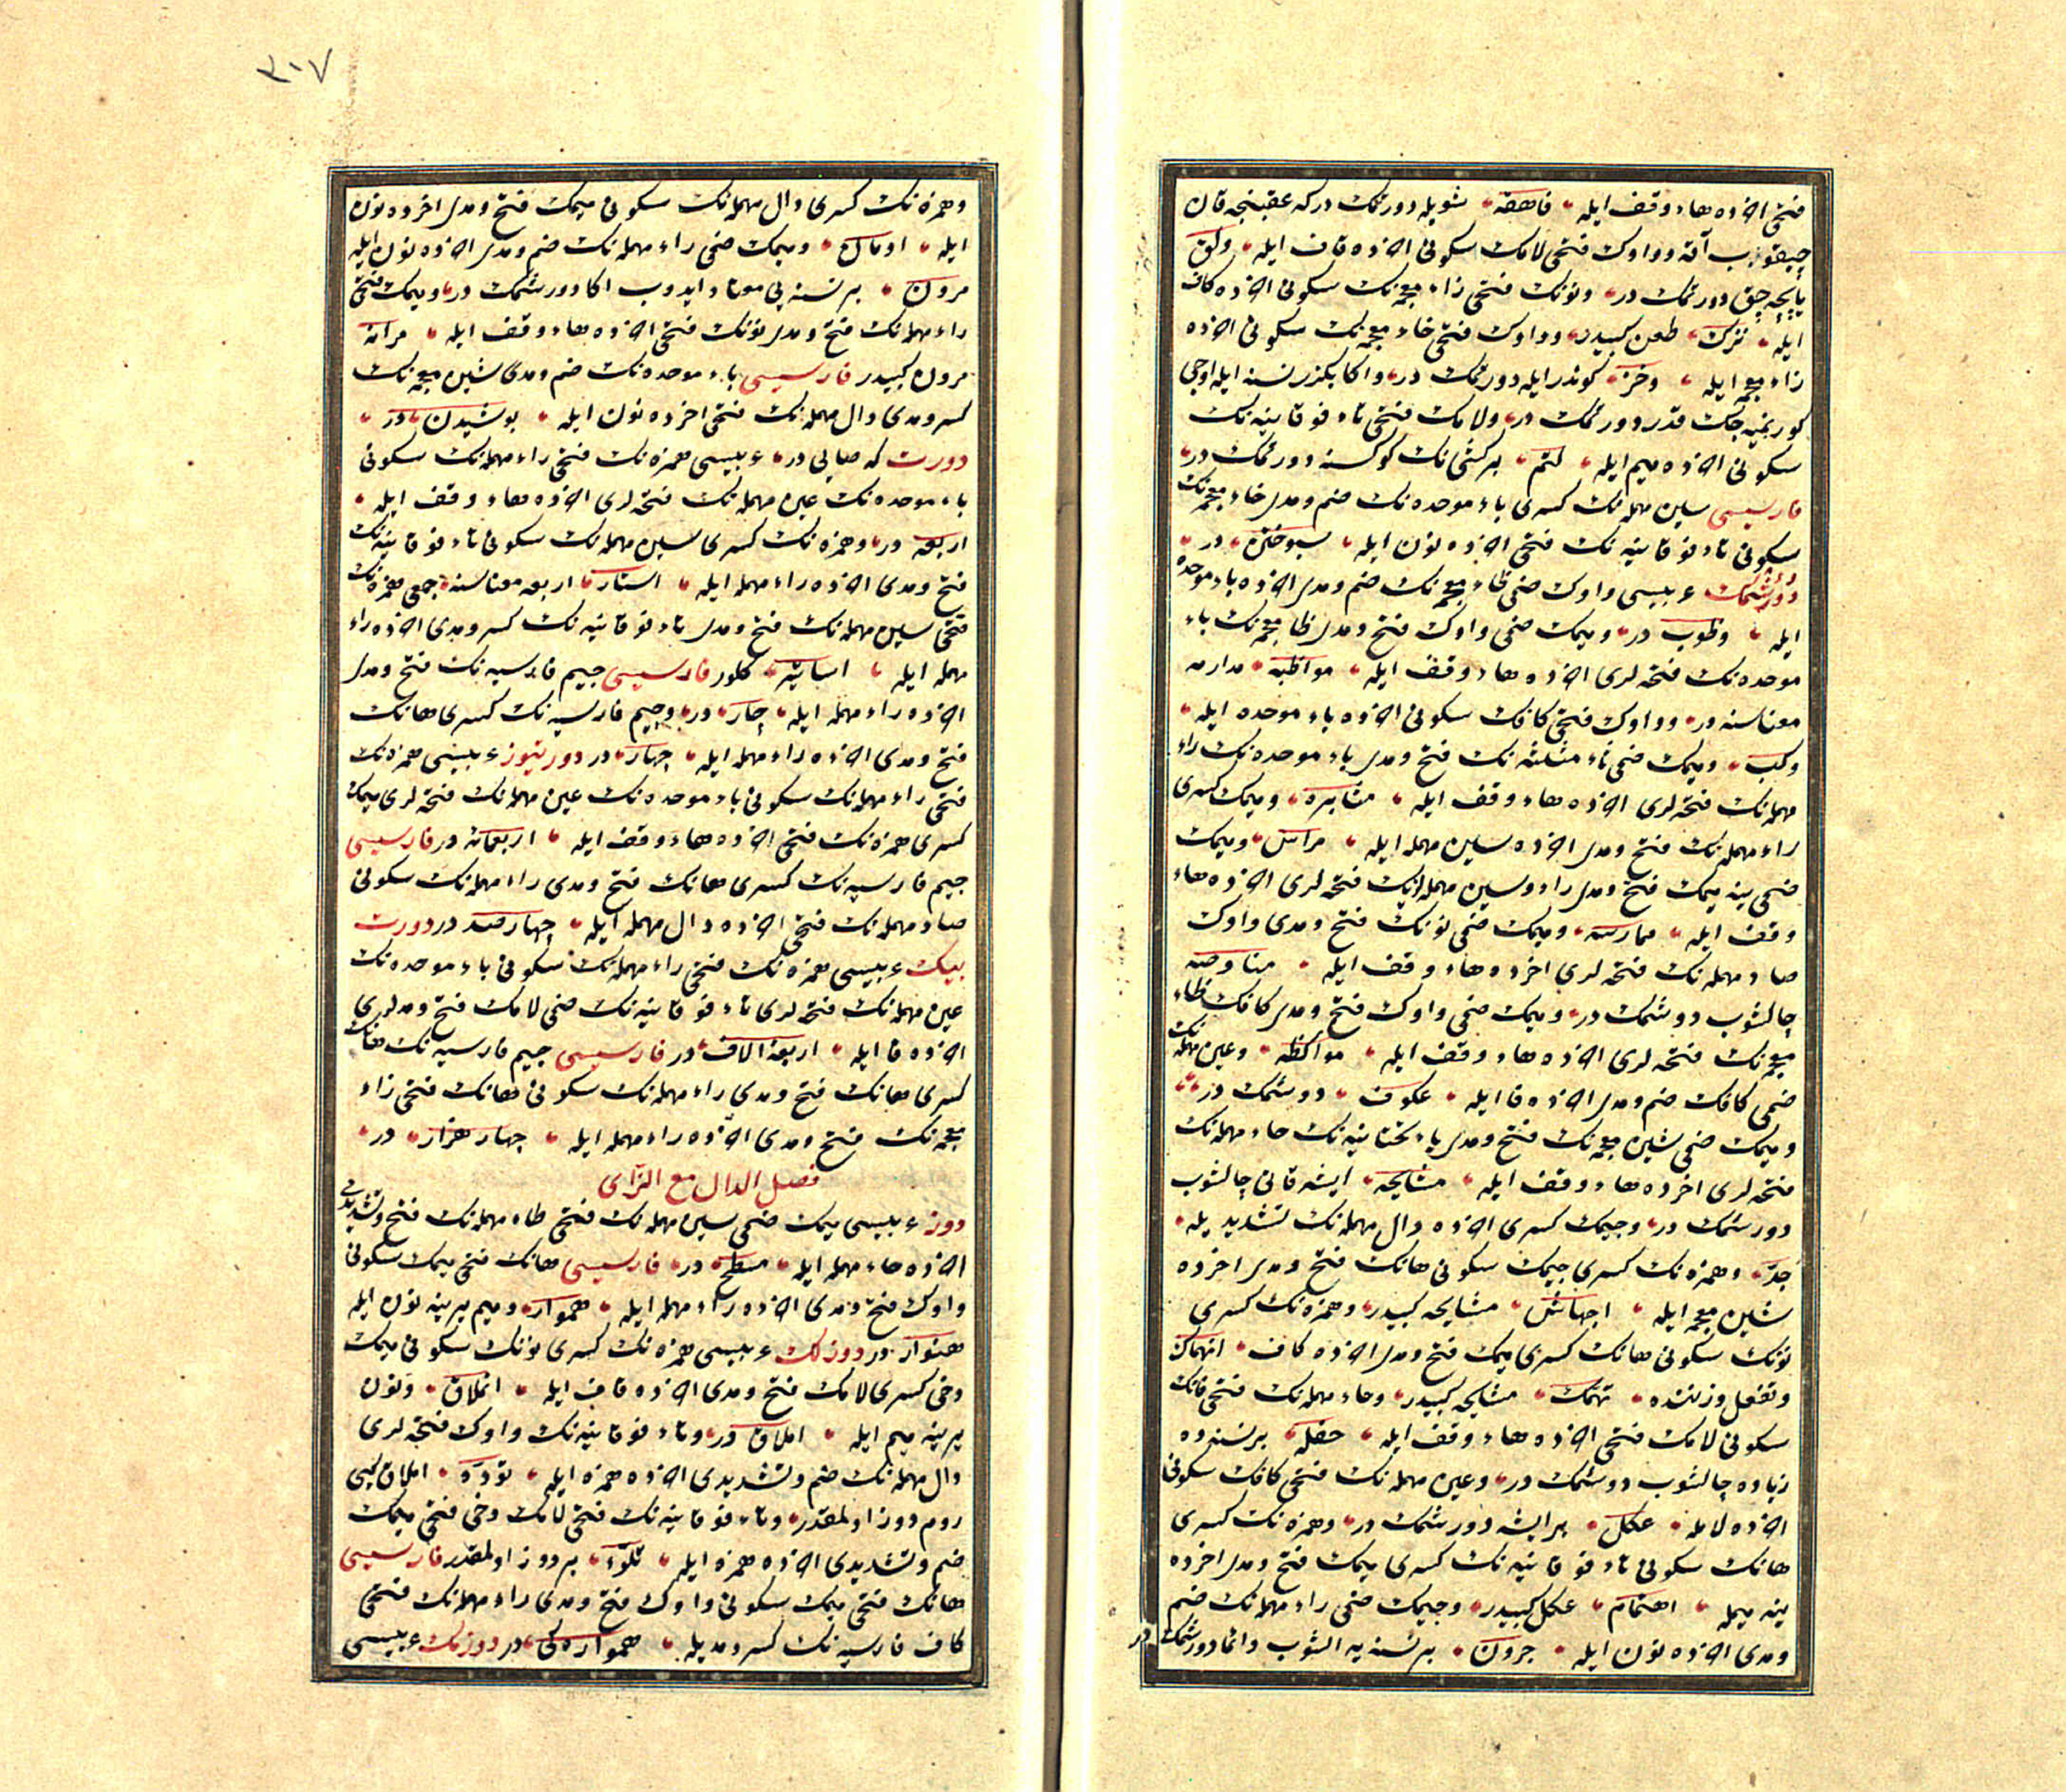 فتحی اخرده هاء وقف ايله فاهقه شويله دورتمك دركه عقبنجه قان
چيقوب آقه وواوك فتحی لامك سكونی اخرده قاف ايله ولق
پايچه جق دورتمك در ونونك فتحی زاء معجمه نك سكونی اخرده كاف
ايله نزك طعن كبيدر وواوك فتحی خاء معجمه نك سكونی اخرده
زاء معجمه ايله وخز كوندر ايله دورتمك در واكا بكزر نسنه ايله اوجی
كورنميه جك قدر دورتمك در ولامك فتحی تاء فوقانيه نك
سكونی اخرده ميم ايله لتم بر كشی نك كوكسنه دورتمك در
فارسيسی سين مهمله نك كسری باء موحده نك ضم ومدی خاء معجمه نك
سكونی تاء فوقانيه نك فتحی اخرده نون ايله سپوختن در
دورشمك عربيسی واوك ضمی ظاء معجمه نك ضم ومدی اخرده باء موحده
ايله وظوب در وميمك ضمی واوك فتح ومدی ظا معجمه نك باء
موحده نك فتحه لری اخرده هاء وقف ايله مواظبه مداومه
معناسنه در وواوك فتحی كافك سكونی اخرده باء موحده ايله
وكب وميمك ضمی ثاء مثلثه نك فتح ومدی باء موحده نك راء
مهمله نك فتحه لری اخرده هاء وقف ايله مثابره وميمك كسری
راء مهمله نك فتح ومدی اخرده سين مهمله ايله مراس وميمك
ضمی ينه ميمك فتح ومدی راء وسين مهمله لرنك فتحه لری اخرده هاء
وقف ايله ممارسه وميمك ضمی نونك فتح ومدی واوك
صاد مهمله نك فتحه لری اخرده هاء وقف ايله مناوصه
چالشوب دورشمك در وميمك ضمی واوك فتح ومدی كافك ظاء
معجمه نك فتحه لری اخرده هاء وقف ايله مواكظه وعين مهمله نك
ضمی كافك ضم ومدی اخرده فا ايله عكوف دورشمك در
وميمك ضمی شين معجمه نك فتح ومدی ياء تحتانيه نك حاء مهمله نك
فتحه لری اخرده هاء وقف ايله مشايحه ايشه قاتی چالشوب
دورشمك در وجيمك كسری اخرده دال مهمله نك تشديد يله
جد وهمزه نك كسری جيمك سكونی هانك فتح ومدی اخرده
شين معجمه ايله اجهاش مشايحه كبيدر وهمزه نك كسری
نونك سكونی هانك كسری ميمك فتح ومدی اخرده كاف انهماك
وتفعل وزننده تهمك مشايحه كبيدر وحاء مهمله نك فتحی فانك
سكونی لامك فتحی اخرده هاء وقف ايله حفله بر نسنه ده
زياده چالشوب دورشمك در وعين مهمله نك فتحی كافك سكونی
اخرده لامله عكل بر ايشه دورشمك در وهمزه نك كسری
هانك سكونی تاء فوقانيه نك كسری ميمك فتح ومدی اخرده
ينه ميمله اهتمام عكل كبيدر وجيمك ضمی راء مهمله نك ضم
ومدی اخرده نون ايله جرون بر نسنه يه الشوب دائما دورشمك در
٣٠٧
وهمزه نك كسری دال مهمله نك سكونی ميمك فتح ومدی اخرده نون
ايله ادمان وميمك ضمی راء مهمله نك ضم ومدی اخرده نون ايله
مرون بر نسنه يی معتاد ايدوب اكا دورشمك در وميمك فتحی
راء مهمله نك فتح ومدی نونك فتحی اخرده هاء وقف ايله مرانه
مرون كبيدر فارسيسی باء موحده نك ضم ومدی شين معجمه نك
كسر ومدی دال مهمله نك فتحی اخرده نون ايله بوشيدن در
دورت كه صايی در عربيسی همزه نك فتحی راء مهمله نك سكونی
باء موحده نك عين مهمله نك فتحه لری اخرده هاء وقف ايله
اربعه در وهمزه نك كسری سين مهمله نك سكونی تاء فوقانيه نك
فتح ومدی اخرده راء مهمله ايله استار اربعه معناسنه جمعی همزه نك
فتحی سين مهمله نك فتح ومدی تاء فوقانيه نك كسر ومدی اخرده راء
مهمله ايله اساتير كلور فارسيسی جيم فارسيه نك فتح ومدی
اخرده راء مهمله ايله چار در وجيم فارسيه نك كسری هانك
فتح ومدی اخرده راء مهمله ايله چهار در دورتيوز عربيسی همزه نك
فتحی راء مهمله نك سكونی باء موحده نك عين مهمله نك فتحه لری ميمك
كسری همزه نك فتحی اخرده هاء وقف ايله اربعمائه در فارسيسی
جيم فارسيه نك كسری هانك فتح ومدی راء مهمله نك سكونی
صاد مهمله نك فتحی اخرده دال مهمله ايله چهار صد در دورت
بيك عربيسی همزه نك فتحی راء مهمله نك سكونی باء موحده نك
عين مهمله نك فتحه لری تاء فوقانيه نك ضمی لامك فتح ومدلری
اخرده فا ايله اربعة الاف در فارسيسی جيم فارسيه نك هانك
كسری هانك فتح ومدی راء مهمله نك سكونی هانك فتحی زاء
معجمه نك فتح ومدی اخرده راء مهمله ايله چهار هزار در
فصل الدال مع الزای
دوز عربيسی ميمك ضمی سين مهمله نك فتحی طاء مهمله نك فتح وتشديدی
اخرده حاء مهمله ايله مسطح در فارسيسی هانك فتحی ميمك سكونی
واوك فتح ومدی اخرده راء مهمله ايله هموار وميم يرينه نون ايله
هنوار در دوزلك عربيسی همزه نك كسری نونك سكونی ميمك
دخی كسری لامك فتح ومدی اخرده قاف ايله انملاق ونون
يرينه ميم ايله املاق در وتاء فوقانيه نك واوك فتحه لری
دال مهمله نك ضم وتشديدی اخرده همزه ايله تودّء املاق كبی
روم دوز اولمقدر وتاء فوقانيه نك فتحی لامك دخی فتحی ميمك
ضم وتشديدی اخرده همزه ايله تلمّؤ بر دوز اولمقدر فارسيسی
هانك فتحی ميمك سكونی واوك فتح ومدی راء مهمله نك فتحی
كاف فارسيه نك كسر ومديله همواره كی در دوزمك عربيسی